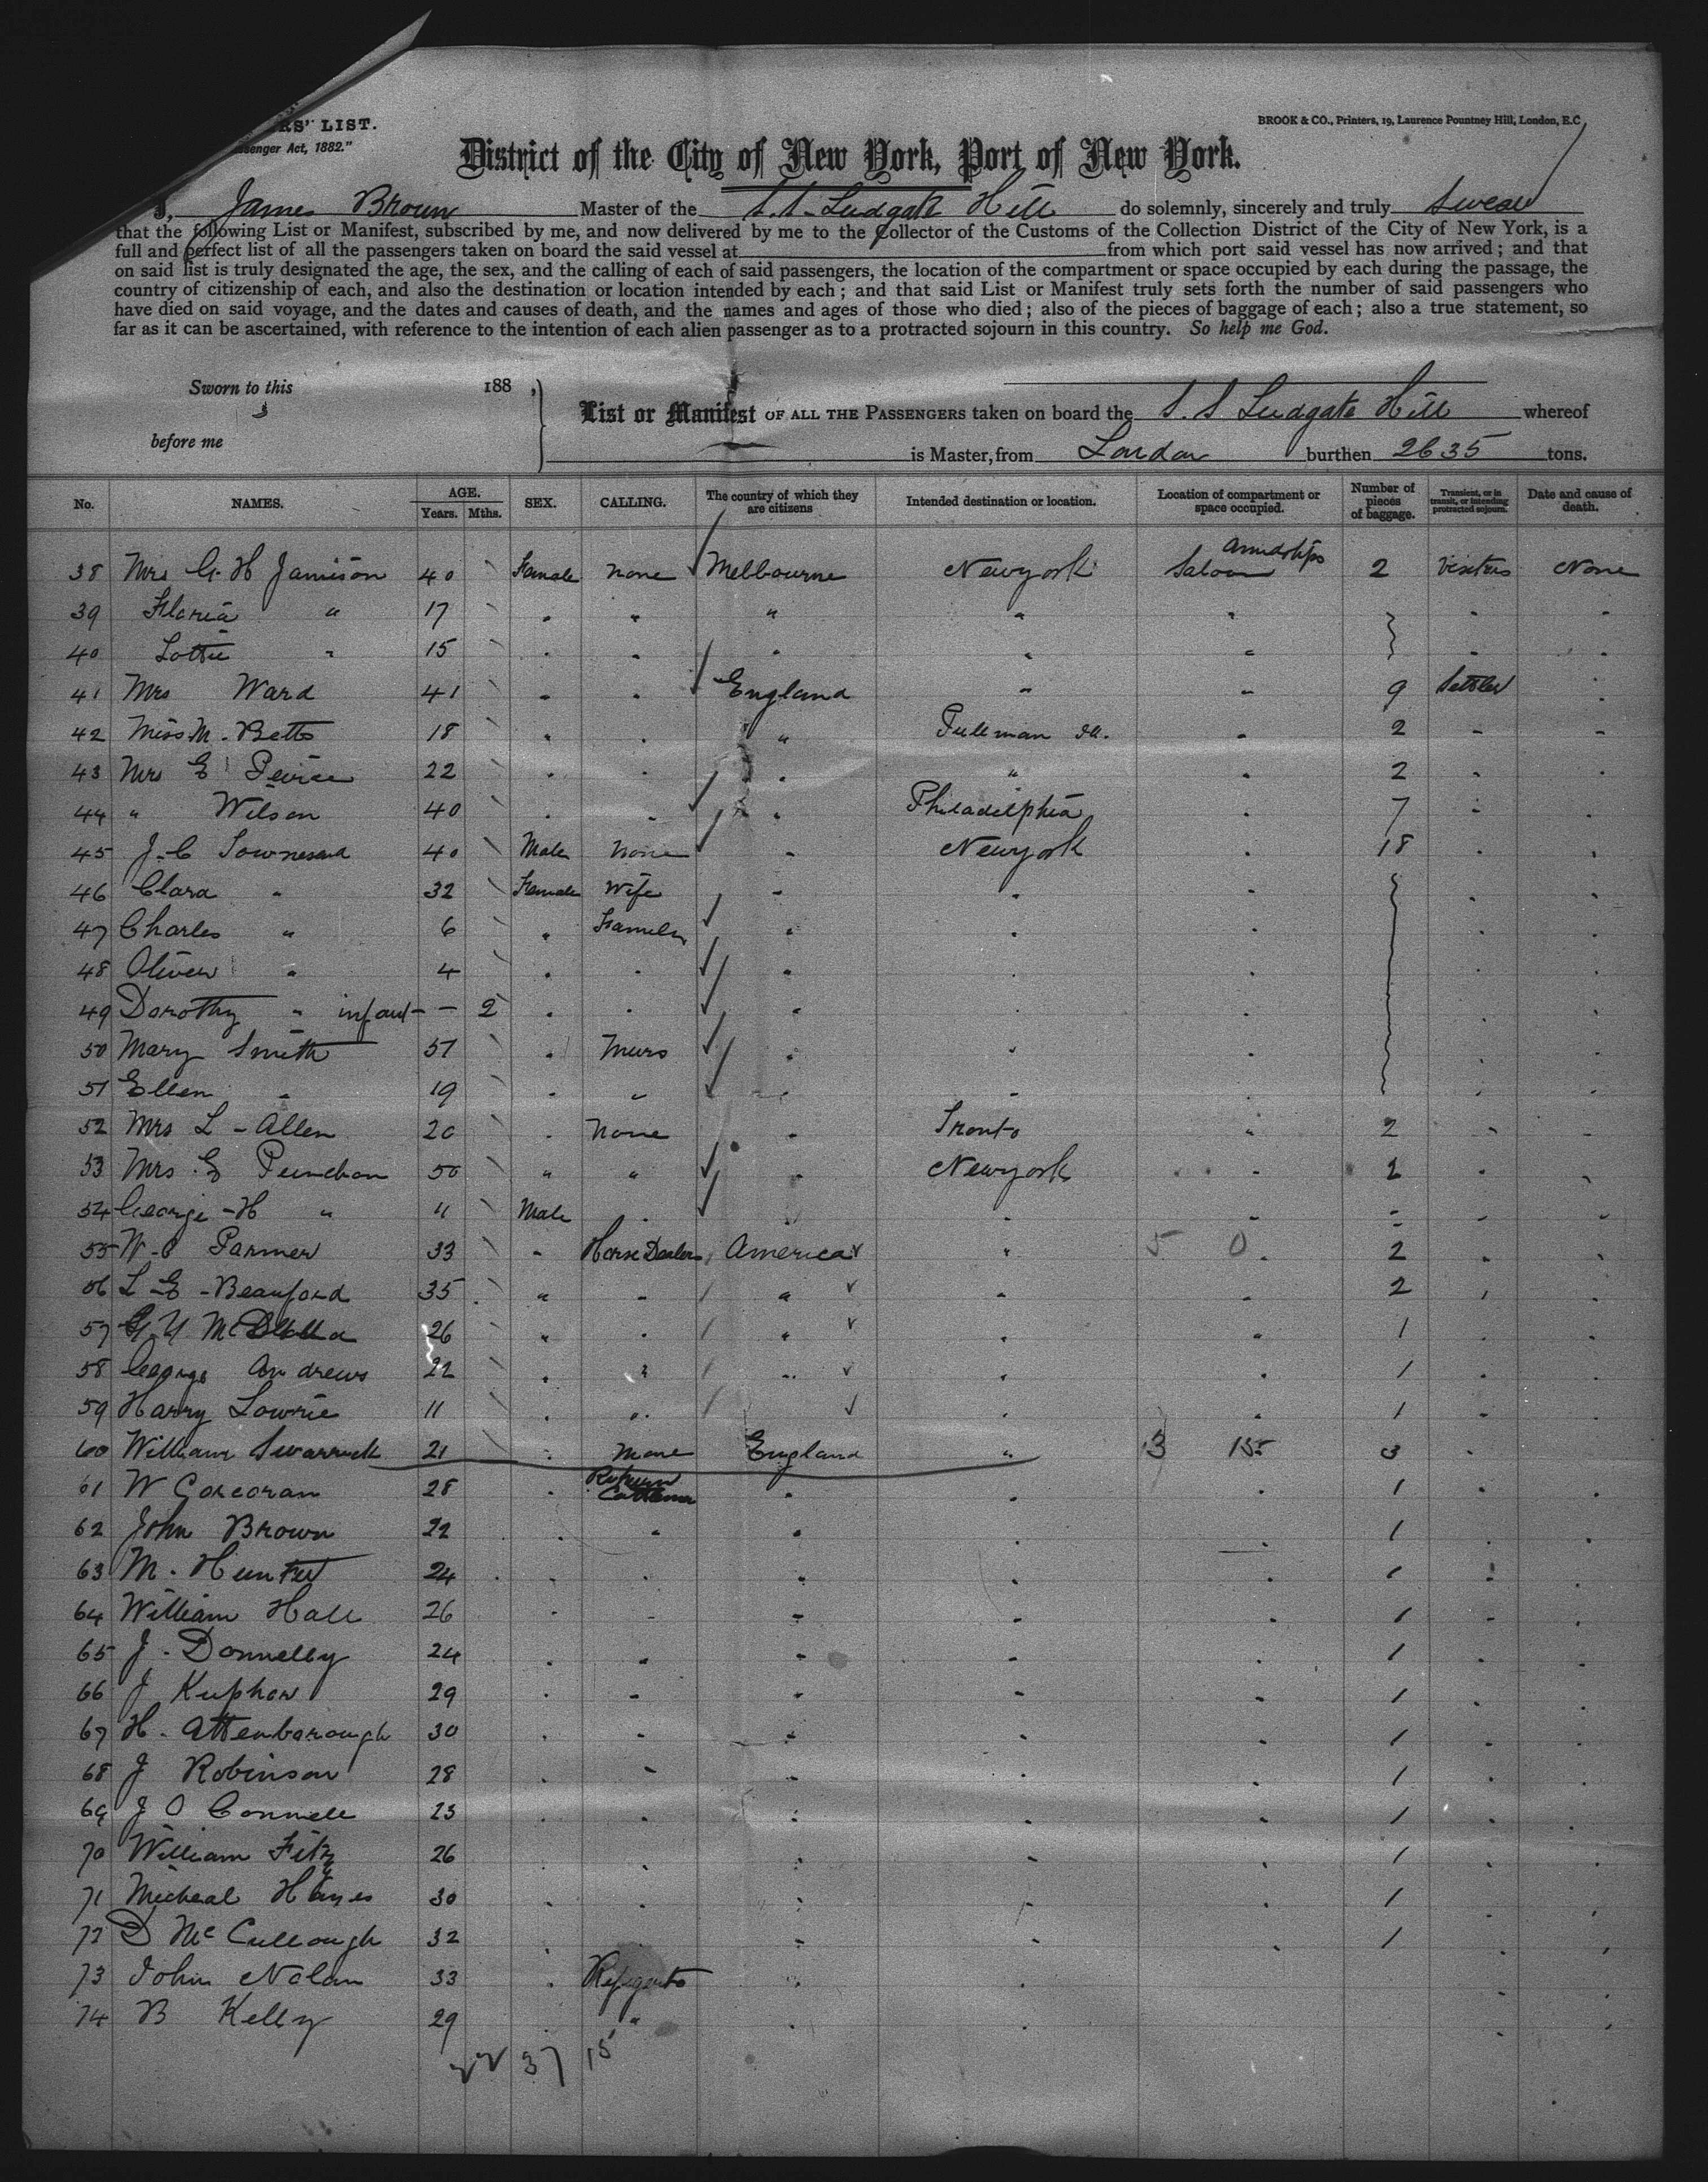 RS' LIST.
senger Act, 1882."
BROOK & CO., Printers, 19, Laurence Pountney Hill, London, E.C
District of the City of New York, Port of New York.
I, James Brown Master of the S.S. Ludgate Hill do solemnly, sincerely and truly swear
that the following List or Manifest, subscribed by me, and now delivered by me to the Collector of the Customs of the Collection District of the City of New York, is a
full and perfect list of all the passengers taken on board the said vessel at from which port said vessel has now arrived; and that
on said list is truly designated the age, the sex, and the calling of each of said passengers, the location of the compartment or space occupied by each during the passage, the
country of citizenship of each, and also the destination or location intended by each; and that said List or Manifest truly sets forth the number of said passengers who
have died on said voyage, and the dates and causes of death, and the names and ages of those who died; also of the pieces of baggage of each; also a true statement, so
far as it can be ascertained, with reference to the intention of each alien passenger as to a protracted sojourn in this country. So help me God.
Sworn to this 188 ,
before me
List or Manifest OF ALL THE PASSENGERS taken on board the S. S. Ludgate Hill whereof
is Master, from London burthen 2635 tons.
No. NAMES. AGE. Years. Mths. SEX. CALLING. The country of which they are citizens Intended destination or location. Location of compartment or space occupied. Number of pieces of baggage. Transient, or in transit, or intending protracted sojourn. Date and cause of death.
38 Mrs G. H Jamison 40 Female none Melbourne Newyork Saloon Amidships 2 visitors None
39 " 17 " " " " "
40 Lottie " 15 " " " " "
41 Mrs Ward 41 " " England " " 9 Settler
42 Miss M. Betts 18 " " " Pullman Ill. " 2 " "
43 Mrs E Peirce 22 " " " " " 2 " "
44 " Wilson 40 " " " Philadelphia " 7 " "
45 J. C Townesend 40 Male none " Newyork " 18 " "
46 Clara " 32 Female Wife " " " " "
47 Charles " 6 " Family " " " " "
48 Oliver " 4 " " " " " " "
49 Dorothy " infant - - 2 " " " " " " "
50 Mary Smith 51 " Nurs " " " " "
51 Ellen " 19 " " " " " " "
52 Mrs L - Allen 20 " none " Tronto " 2 " "
53 Mrs E Punchon 50 " " " Newyork " 2 " "
54 George - H " 11 Male " " " " " " "
55 W. C Parmer 33 " Horse Dealers America " 5 0 " 2 " "
56 L - E - Beauford 35 " " " " " 2 " "
57 26 " " " " " 1 " "
58 George Andrews 22 " " " " " 1 " "
59 Harry Lowrie 11 " " " " " 1 " "
60 William 21 " None England " 3 155 3 "
61 W Corcoran 28 " Return Cattlemen " " " 1 " "
62 John Brown 22 " " " " " 1 " "
63 M. Hunter 24 " " " " " 1 " "
64 William Hall 26 " " " " " 1 " "
65 J. Donnelly 24 " " " " " 1 " "
66 J 29 " " " " " 1 " "
67 H. Attenborough 30 " " " " " 1 " "
68 J Robinson 28 " " " " " 1 " "
69 J O Connell 23 " " " " " 1 " "
70 William Fitz 26 " " " " " 1 " "
71 Micheal Hayes 30 " " " " " 1 " "
72 D McCullough 32 " " " " " 1 " "
73 John Nolan 33 " " " " "
74 B Kelly 29 " " " " " "
37 15